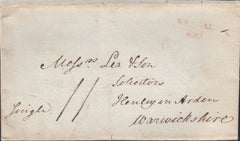 Messrs Lea & Son
Solicitors
Single 11 Henley in Arden
Warwickshire